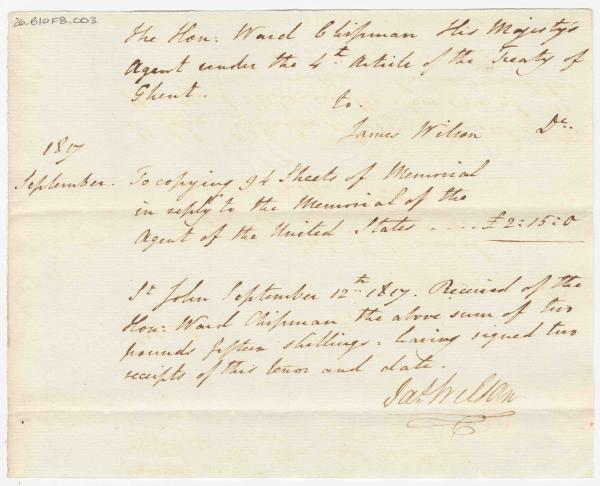 26.B10F8.003
The Hon: Ward Chipman His Majesty's
Agent under the 4th Article of the Treaty of
Ghent.
to.
James Wilson Dr.
1817
September. To copying 94 Sheets of Memorial
in reply to the Memorial of the
Agent of the United States .... £2:15:0
St John September 12th 1817. Received of the
Hon: Ward Chipman the above sum of two
pounds fifteen shillings: having signed two
receipts of this tenor and date.
Jas Wilson